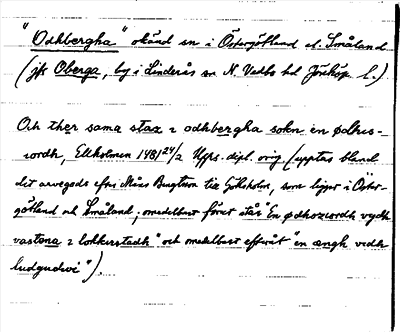 "Odhbergha" okänd sn i Östergötland el. Småland
(jfr Oberga, by i Linderås sn N. Vedbo hd Jönköp. l.)
Och ther sama staz i odhbergha sokn en ødhes-
iordh, Ekholmen 1481 24/2 Upps. dipl. orig. (upptas bland
det arvegods efter Måns Bengtson till Göksholm, som ligger i Öster-
götland och Småland; omedelbart föret står "En ødhoziordh
vastena i lokkirstadh" och omedelbart efteråt "en ængh vidh
ludgudwi").